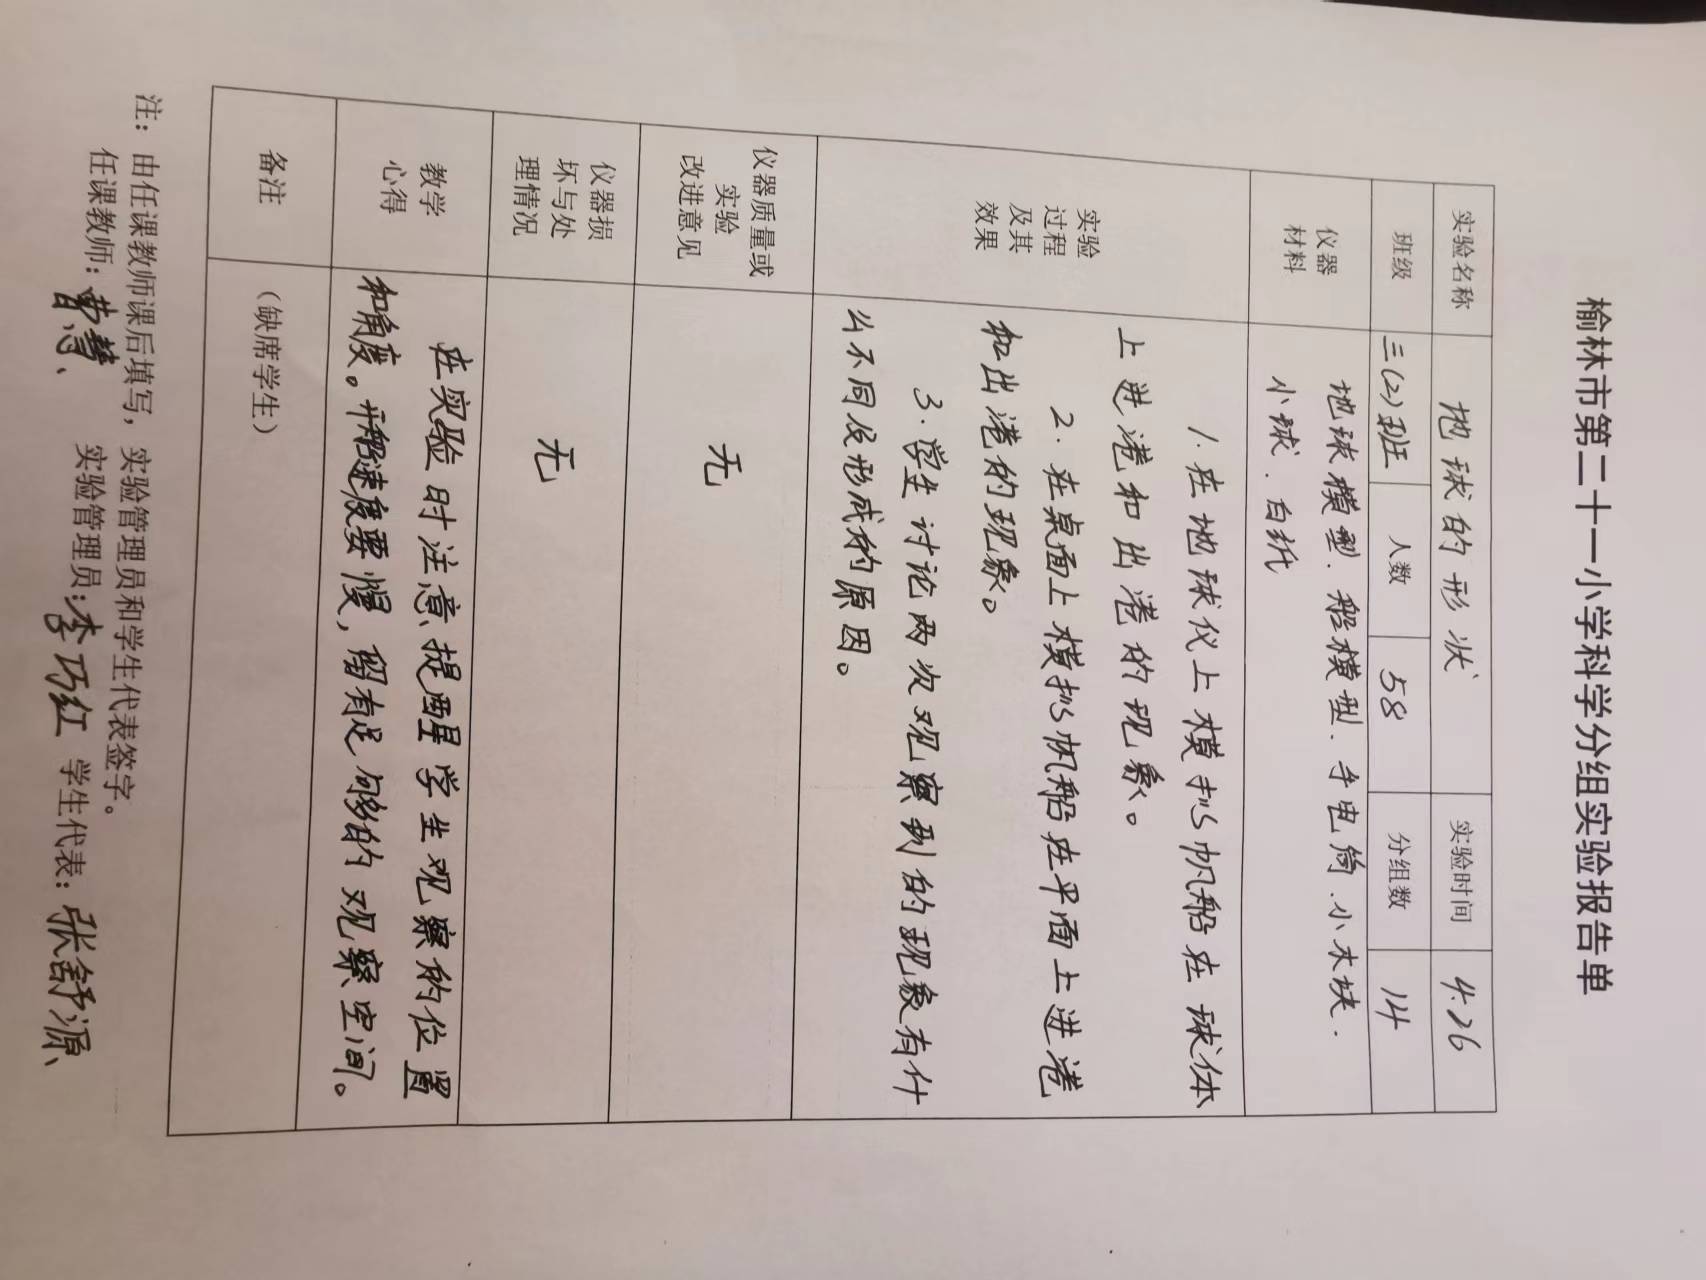 榆林市第二十一小学科学分组实验报告单
实验名称 地球的形状 实验时间 4.26
班级 三(2)班 人数 58 分组数 14
仪器
材料
地球模型、船模型、手电筒、小木块、
小球、白纸
实验
过程
及其
效果
1.在地球仪上模拟帆船在球体
上进港和出港的现象。
2.在桌面上模拟帆船在平面上进港
和出港的现象。
3.学生讨论两次观察到的现象有什
么不同及形成的原因。
仪器质量或
实验
改进意见
无
仪器损
坏与处
理情况
无
教学
心得
在实验时注意提醒学生观察的位置
和角度。开船速度要慢，留有足够的观察空间。
备注 （缺席学生）
注：由任课教师课后填写，实验管理员和学生代表签字。
任课教师：曹慧 实验管理员：李巧红 学生代表：张舒源